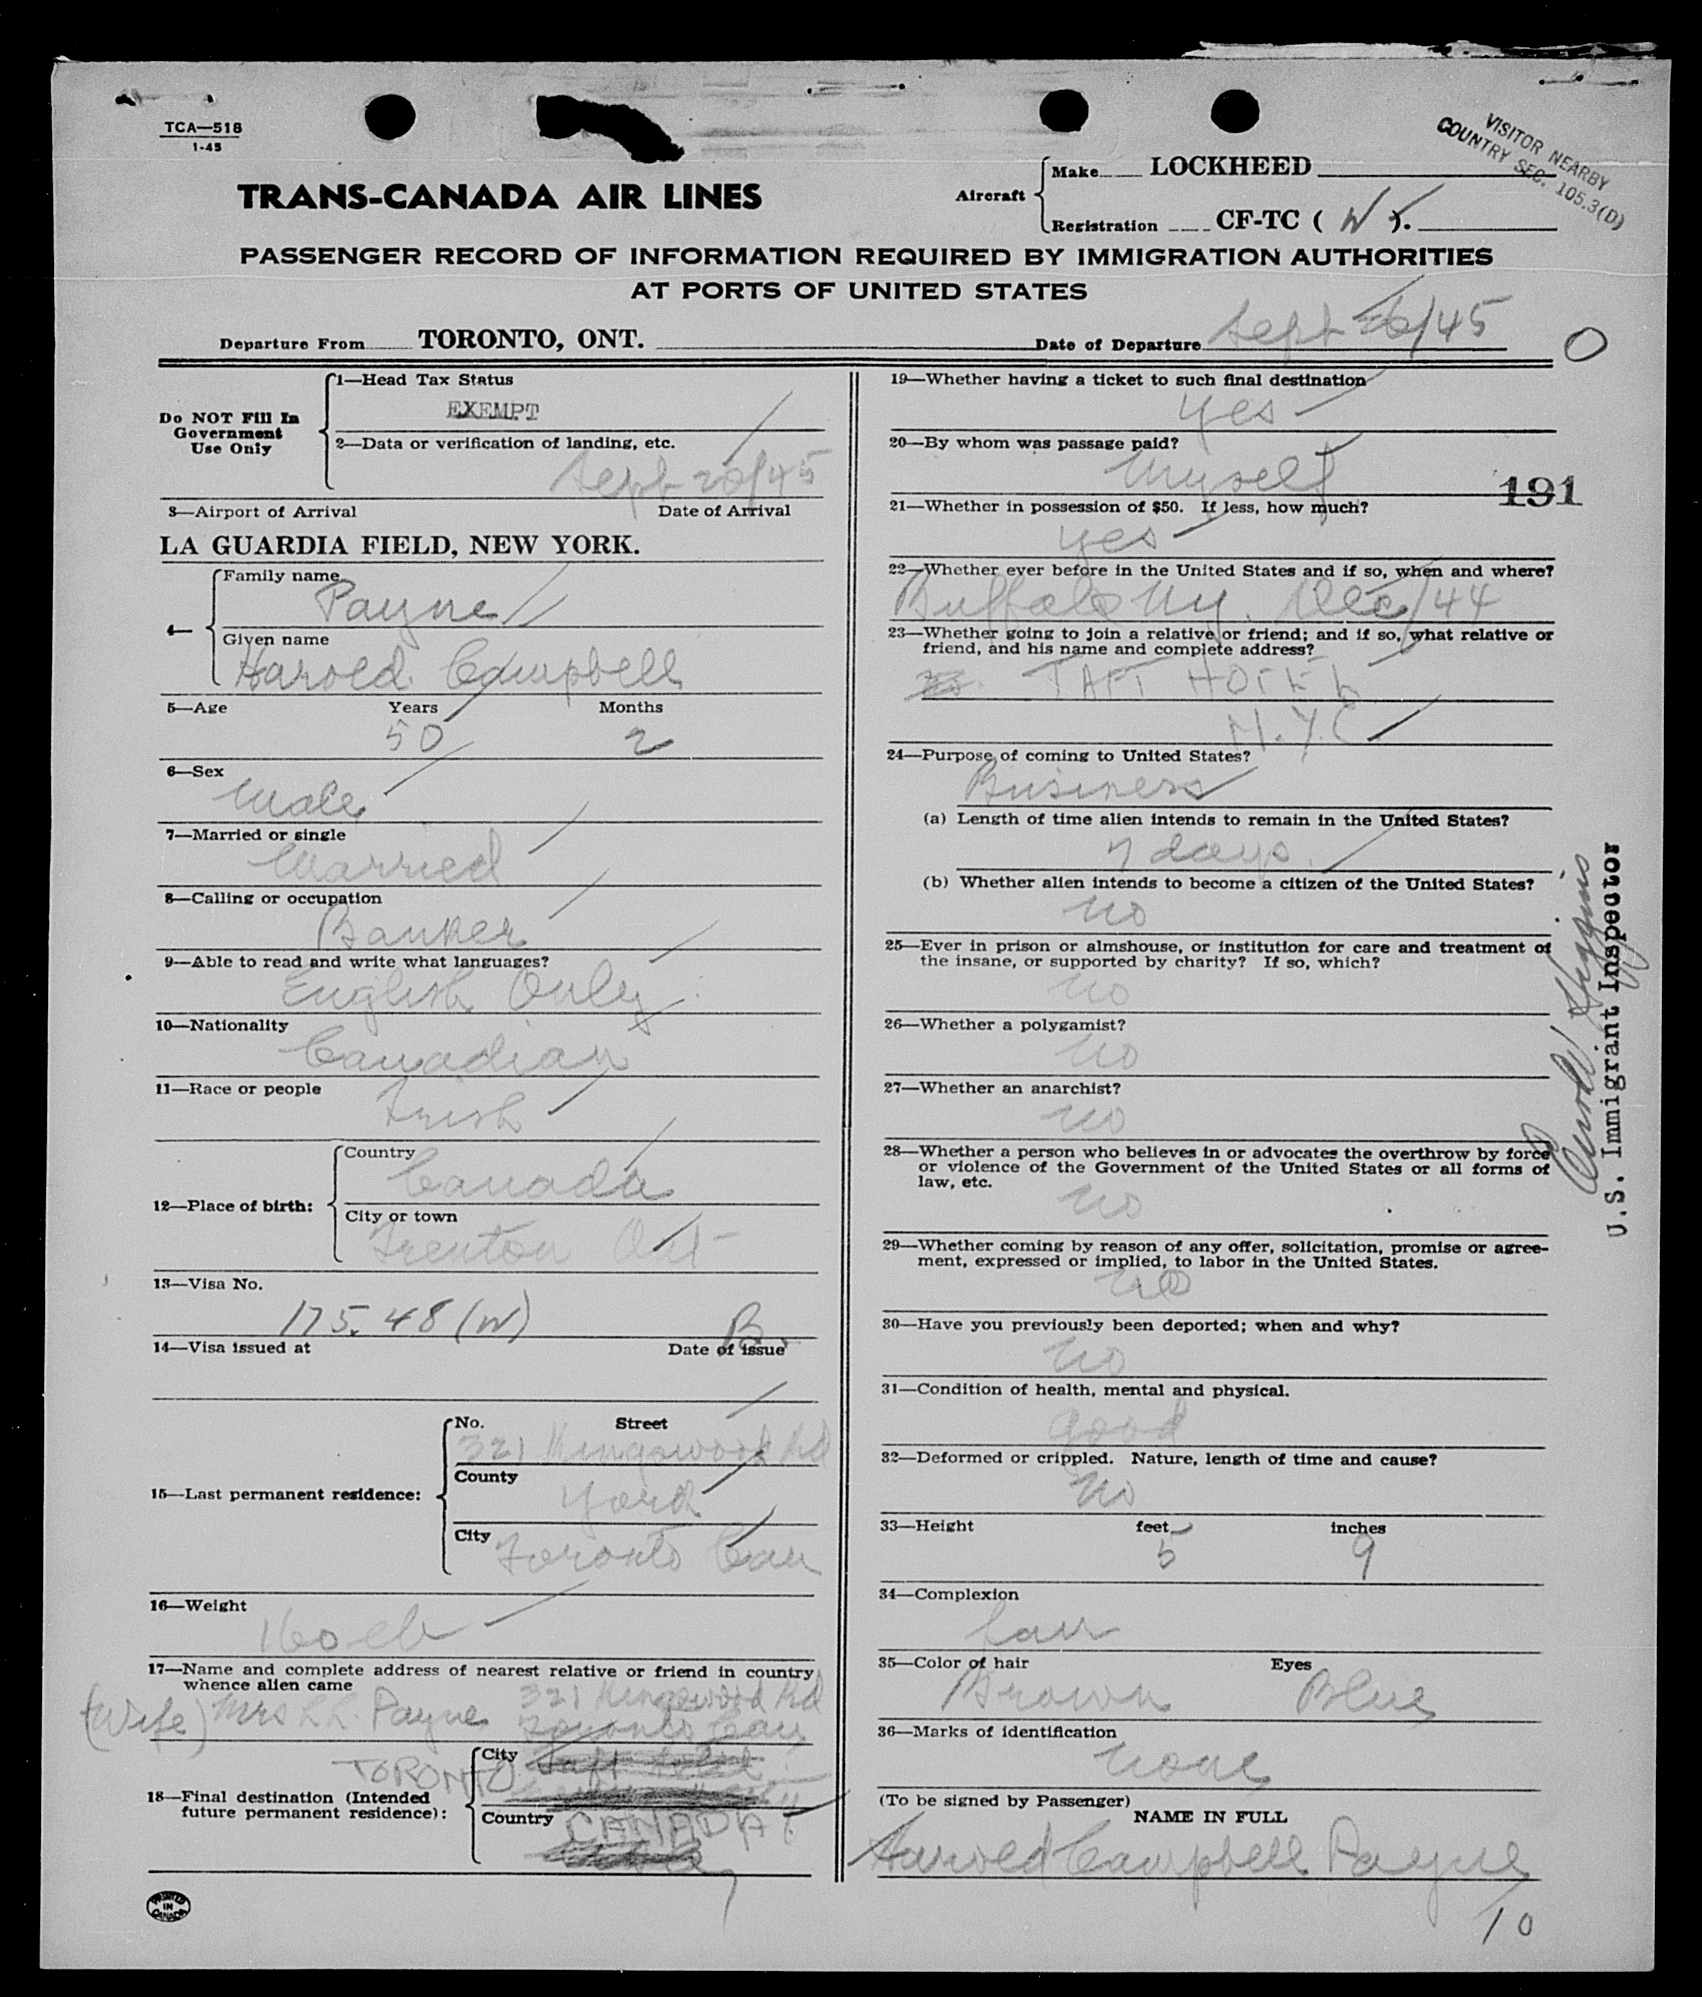 TCA—518
1-45
VISITOR NEARBY
COUNTRY SEC. 105.3(D)
TRANS-CANADA AIR LINES
Aircraft
Make LOCKHEED
Registration CF-TC ( ).
PASSENGER RECORD OF INFORMATION REQUIRED BY IMMIGRATION AUTHORITIES
AT PORTS OF UNITED STATES
Departure From TORONTO, ONT. Date of Departure Sept 26/45
Do NOT Fill In
Government
Use Only
1—Head Tax Status
EXEMPT
2—Data or verification of landing, etc.
Sept 26/45
3—Airport of Arrival Date of Arrival
LA GUARDIA FIELD, NEW YORK.
4—
Family name
Payne
Given name
Harold Campbell
5—Age Years Months
50 2
6—Sex
Male
7—Married or single
Married
8—Calling or occupation
Banker
9—Able to read and write what languages?
English Only
10—Nationality
Canadian
11—Race or people
Irish
12—Place of birth:
Country
Canada
City or town
Trenton Ont
13—Visa No.
175.48 (W) B
14—Visa issued at Date of issue
15—Last permanent residence:
No. Street
321 Kingswood Rd
County
York
City
Toronto Can
16—Weight
160 lb
17—Name and complete address of nearest relative or friend in country
whence alien came
321 Kingswood Rd
(Wife) Mrs Payne Toronto Can
18—Final destination (Intended
future permanent residence):
City
TORONTO
Country
CANADA
PRINTED
IN
CANADA
19—Whether having a ticket to such final destination
yes
20—By whom was passage paid?
Myself
191
21—Whether in possession of $50. If less, how much?
yes
22—Whether ever before in the United States and if so, when and where?
Buffalo NY. Dec/44
23—Whether going to join a relative or friend; and if so, what relative or
friend, and his name and complete address?
TAFT HOTEL
N.Y.C.
24—Purpose of coming to United States?
Business
(a) Length of time alien intends to remain in the United States?
7 days.
(b) Whether alien intends to become a citizen of the United States?
No
25—Ever in prison or almshouse, or institution for care and treatment of
the insane, or supported by charity? If so, which?
No
26—Whether a polygamist?
No
27—Whether an anarchist?
No
28—Whether a person who believes in or advocates the overthrow by force
or violence of the Government of the United States or all forms of
law, etc.
No
29—Whether coming by reason of any offer, solicitation, promise or agree-
ment, expressed or implied, to labor in the United States.
No
30—Have you previously been deported; when and why?
No
31—Condition of health, mental and physical.
good
32—Deformed or crippled. Nature, length of time and cause?
No
33—Height feet inches
5 9
34—Complexion
fair
35—Color of hair Eyes
Brown Blue
36—Marks of identification
None
(To be signed by Passenger)
NAME IN FULL
Harold Campbell Payne
10
U.S. Immigrant Inspector